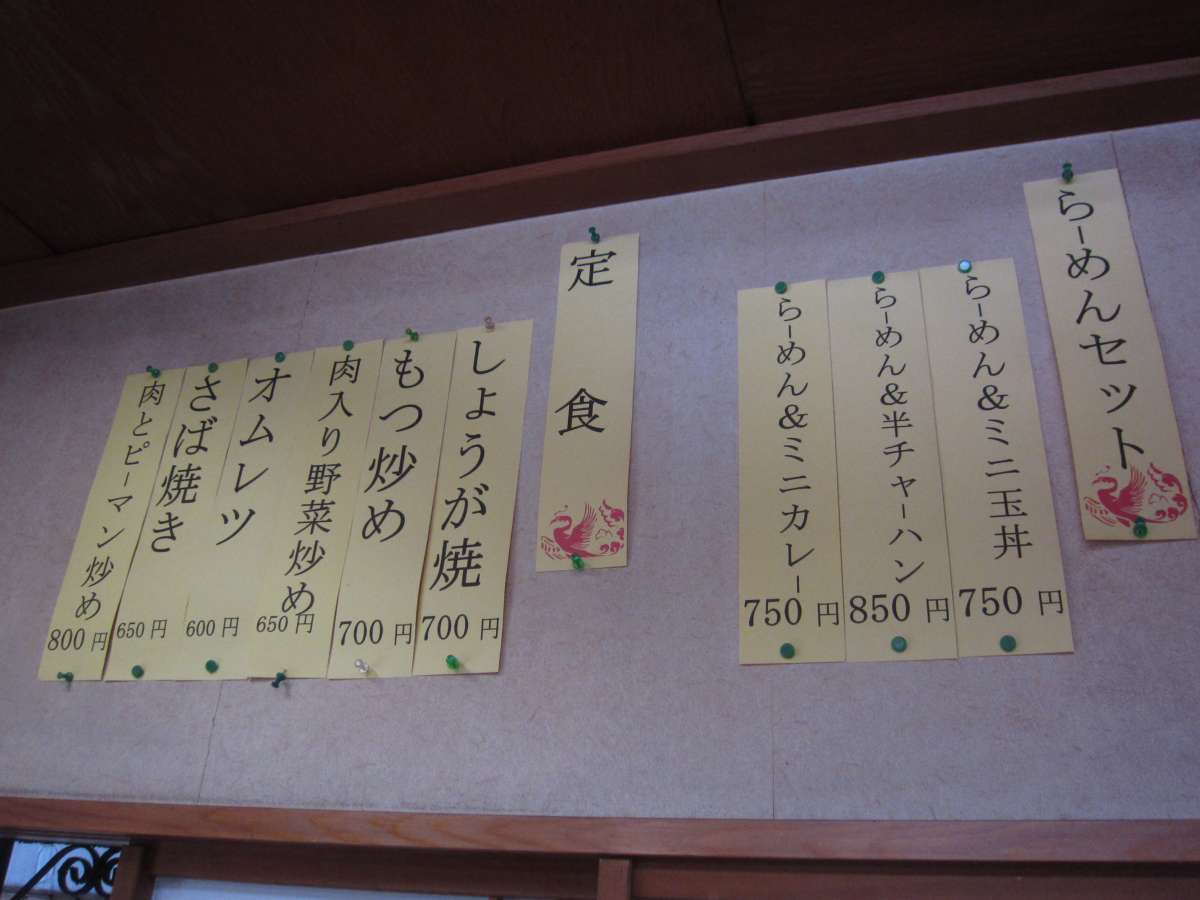 らーめんセット
らーめん&ミニ玉丼
750円
らーめん&半チャーハン
850円
らーめん&ミニカレー
750円
定食
しょうが焼
700円
もつ炒め
700円
肉入り野菜炒め
650円
オムレツ
600円
さば焼き
650円
肉とピーマン炒め
800円